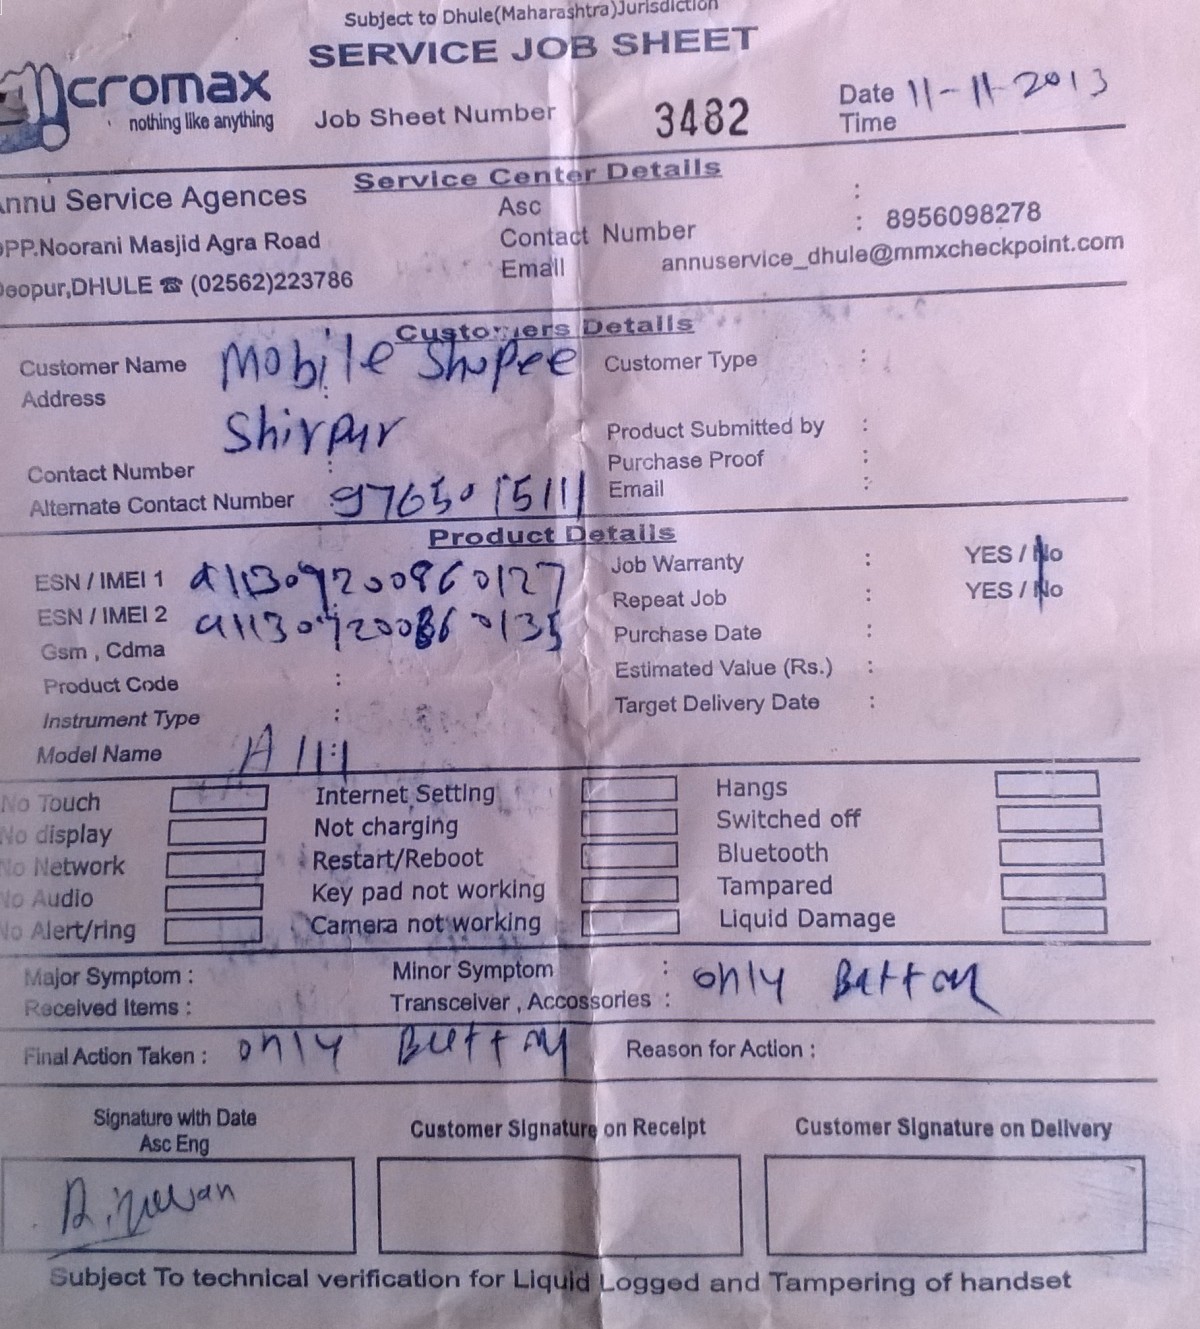 Subject to Dhule(Maharashtra)Jurisdiction
SERVICE JOB SHEET
cromax
nothing like anything
Job Sheet Number 3482
Date 11-11-2013
Time
Service Center Details
Annu Service Agences
Asc :
OPP.Noorani Masjid Agra Road
Contact Number : 8956098278
Deopur,DHULE ☎ (02562)223786
Email annuservice_dhule@mmxcheckpoint.com
Customers Details
Customer Name Mobile Shopee Customer Type :
Address :
Shirpur
Product Submitted by :
Contact Number :
Purchase Proof :
Alternate Contact Number : 9765015111 Email :
Product Details
ESN / IMEI 1 911309200960127 Job Warranty : YES / No
ESN / IMEI 2 Repeat Job : YES / No
Gsm , Cdma Purchase Date :
Product Code : Estimated Value (Rs.) :
Instrument Type : Target Delivery Date :
Model Name : A 111
No Touch Internet Setting Hangs
No display Not charging Switched off
No Network Restart/Reboot Bluetooth
No Audio Key pad not working Tampared
No Alert/ring Camera not working Liquid Damage
Major Symptom : Minor Symptom :
Received Items : Transceiver , Accossories : only Button
Final Action Taken : only Button Reason for Action :
Signature with Date
Asc Eng
Customer Signature on Receipt
Customer Signature on Delivery
Subject To technical verification for Liquid Logged and Tampering of handset